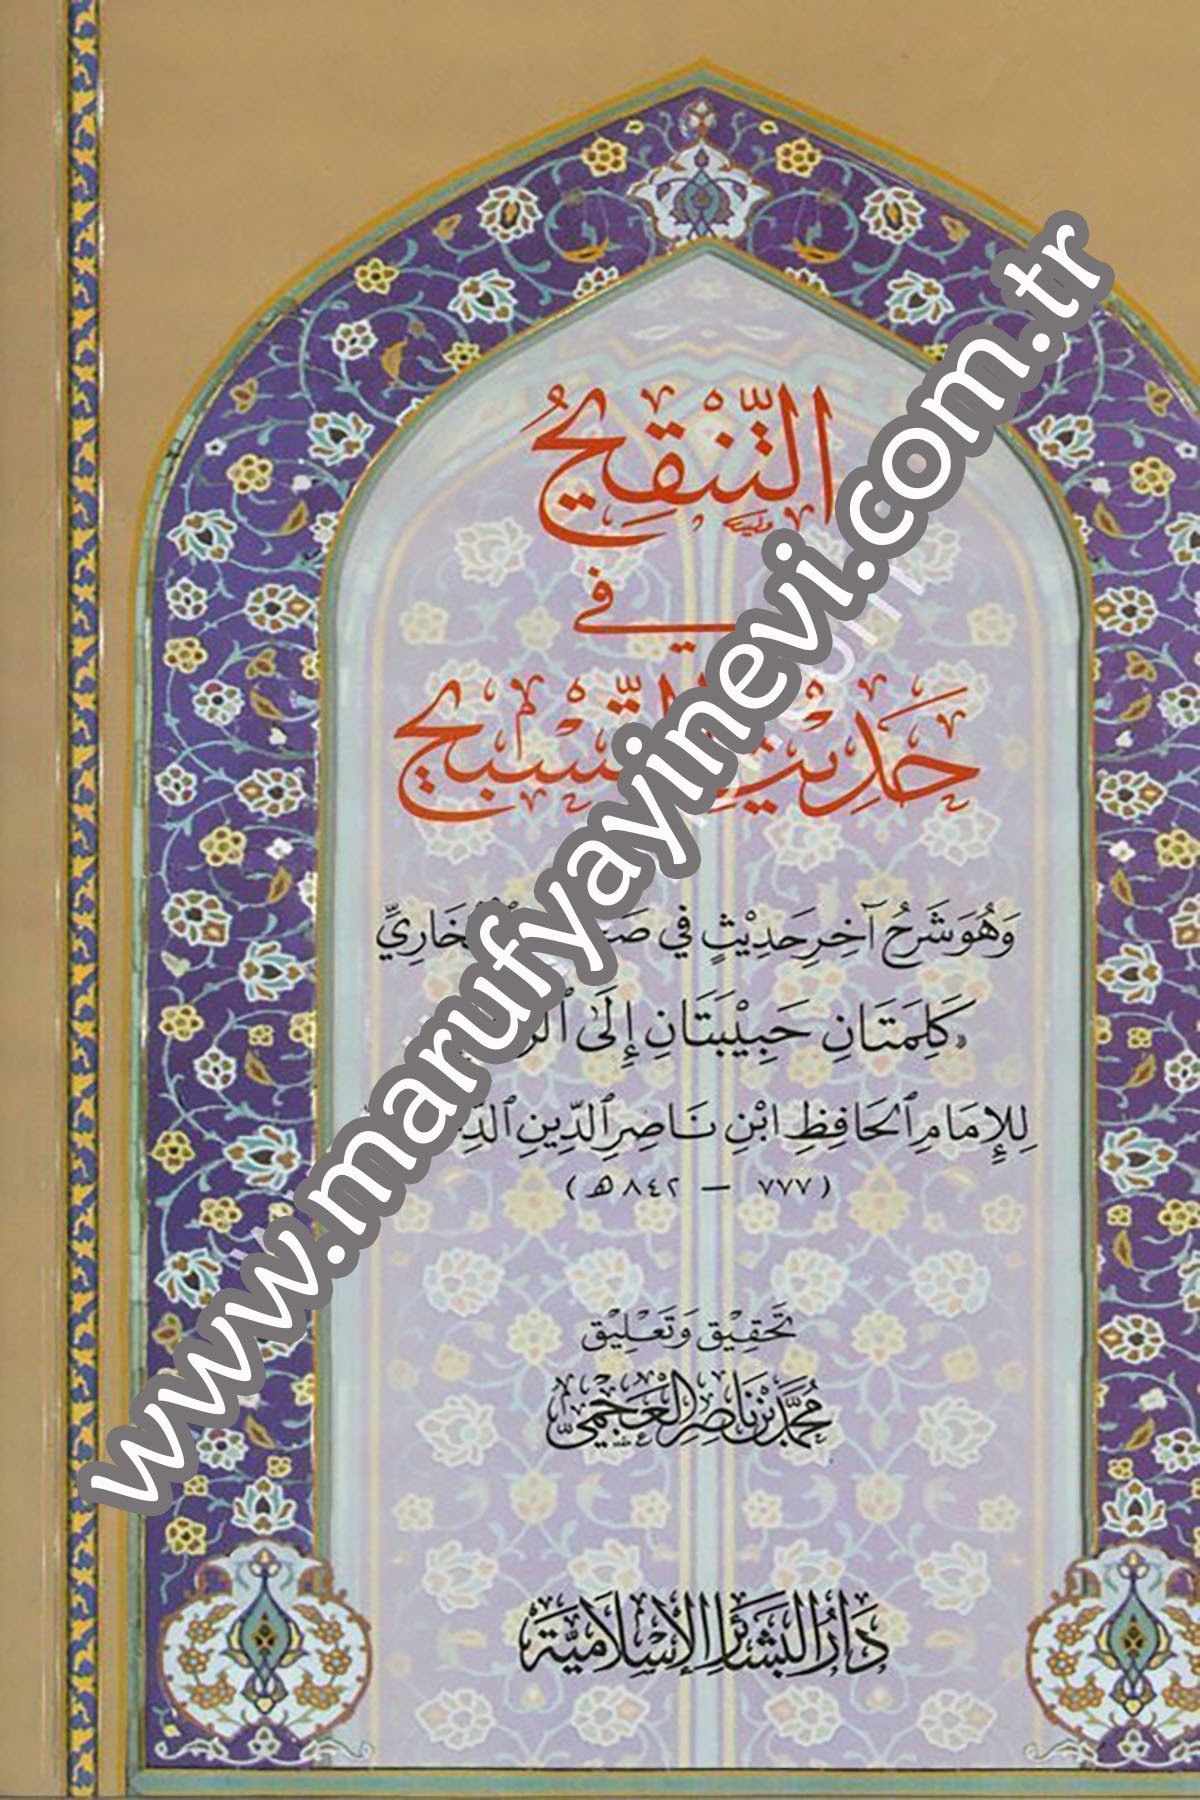 التَّنْقِيحُ
فِي
حَدِيْثِ التَّسْبِيحِ
وَهُوَ شَرْحُ آخِرِ حَدِيْثٍ فِي
كَلِمَتَانِ حَبِيْبَتَانِ إِلَى
لِلإِمَامِ الحَافِظِ ابْنِ نَاصِرِ الدِّينِ
(٧٧٧ - ٨٤٢ هـ)
تَحْقِيْق وَتَعْلِيْق
مُحَمَّد بْن نَاصِر العَجَمِي
دَارُ البَشَائِرِ الإِسْلَامِيَّة
www.marufyayinevi.com.tr